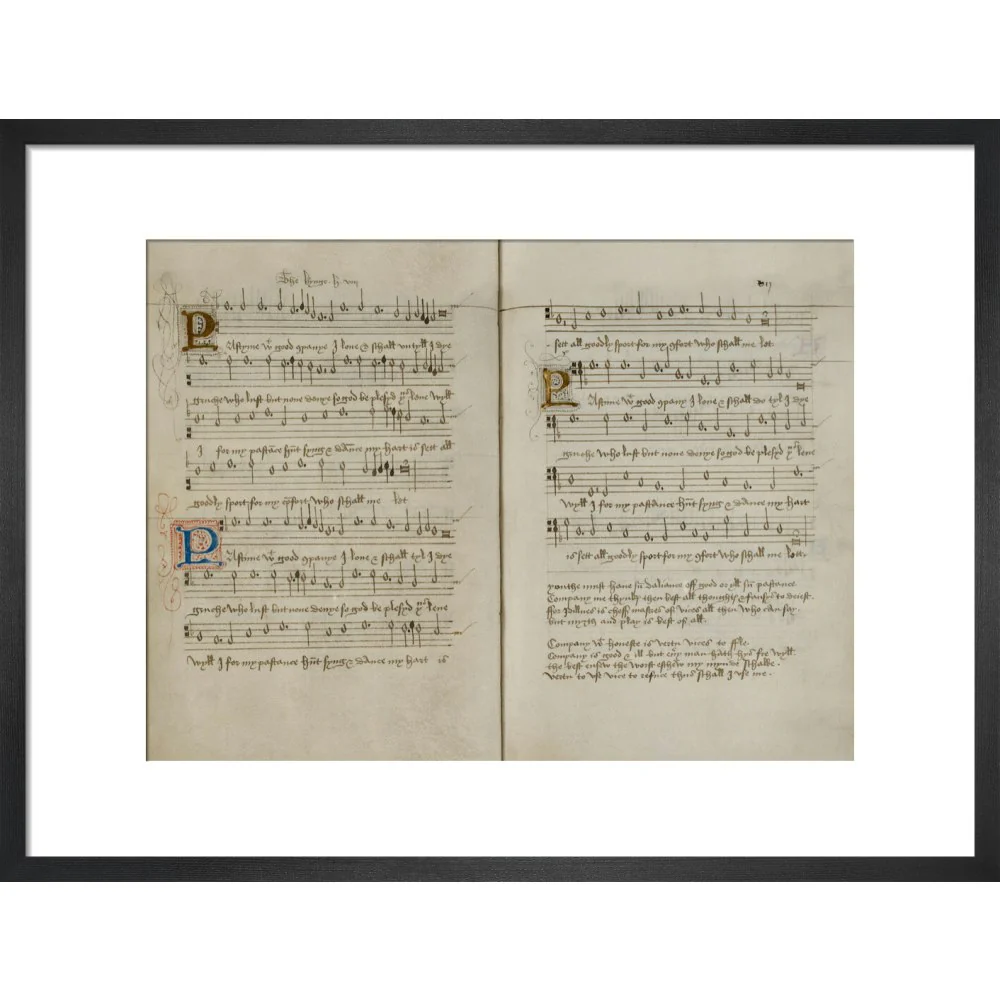 The kynge h viii
PAstyme wt good companye I love & schall untyll I dye
gruche who lust but none denye so god be plesyd thus leve wyll
I for my pastance hunt syng & dance my hart is sett all
goodly sport for my comfort who schall me let
PAstyme wt good companye I love & schall tyl I dye
gruche who lust but none denye so god be plesyd thus leve
wyll I for my pastance hunt syng & dance my hart is
sett all goodly sport for my comfort who schall me let
PAstyme wt good companye I love & schall do tyl I dye
gruche who lust but none denye so god be plesyd thus leve
wyll I for my pastance hunt syng & dance my hart
is sett all goodly sport for my comfort who schall me lett
youthe must have sum daliance off good or yll sum pastance.
Company me thynkes then best all thoughts & fansys to deiest.
ffor Idillnes is cheff mastres of vices all then who can say.
but myrth and play is best of all.
Company wt honeste is vertu vices to ffle.
Company is good & ill but every man hath hys fre wyll.
the best ensew the worst eschew my mynde schalbe.
vertu to use vice to refuce thus schall I use me.